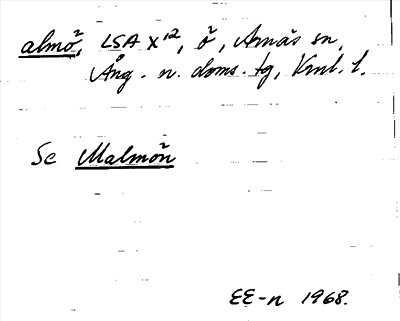 almö², LSA X¹², ö², Arnäs sn,
Ång. n. doms. tg, Vnl. l.
Se Malmön²
EE-n 1968.